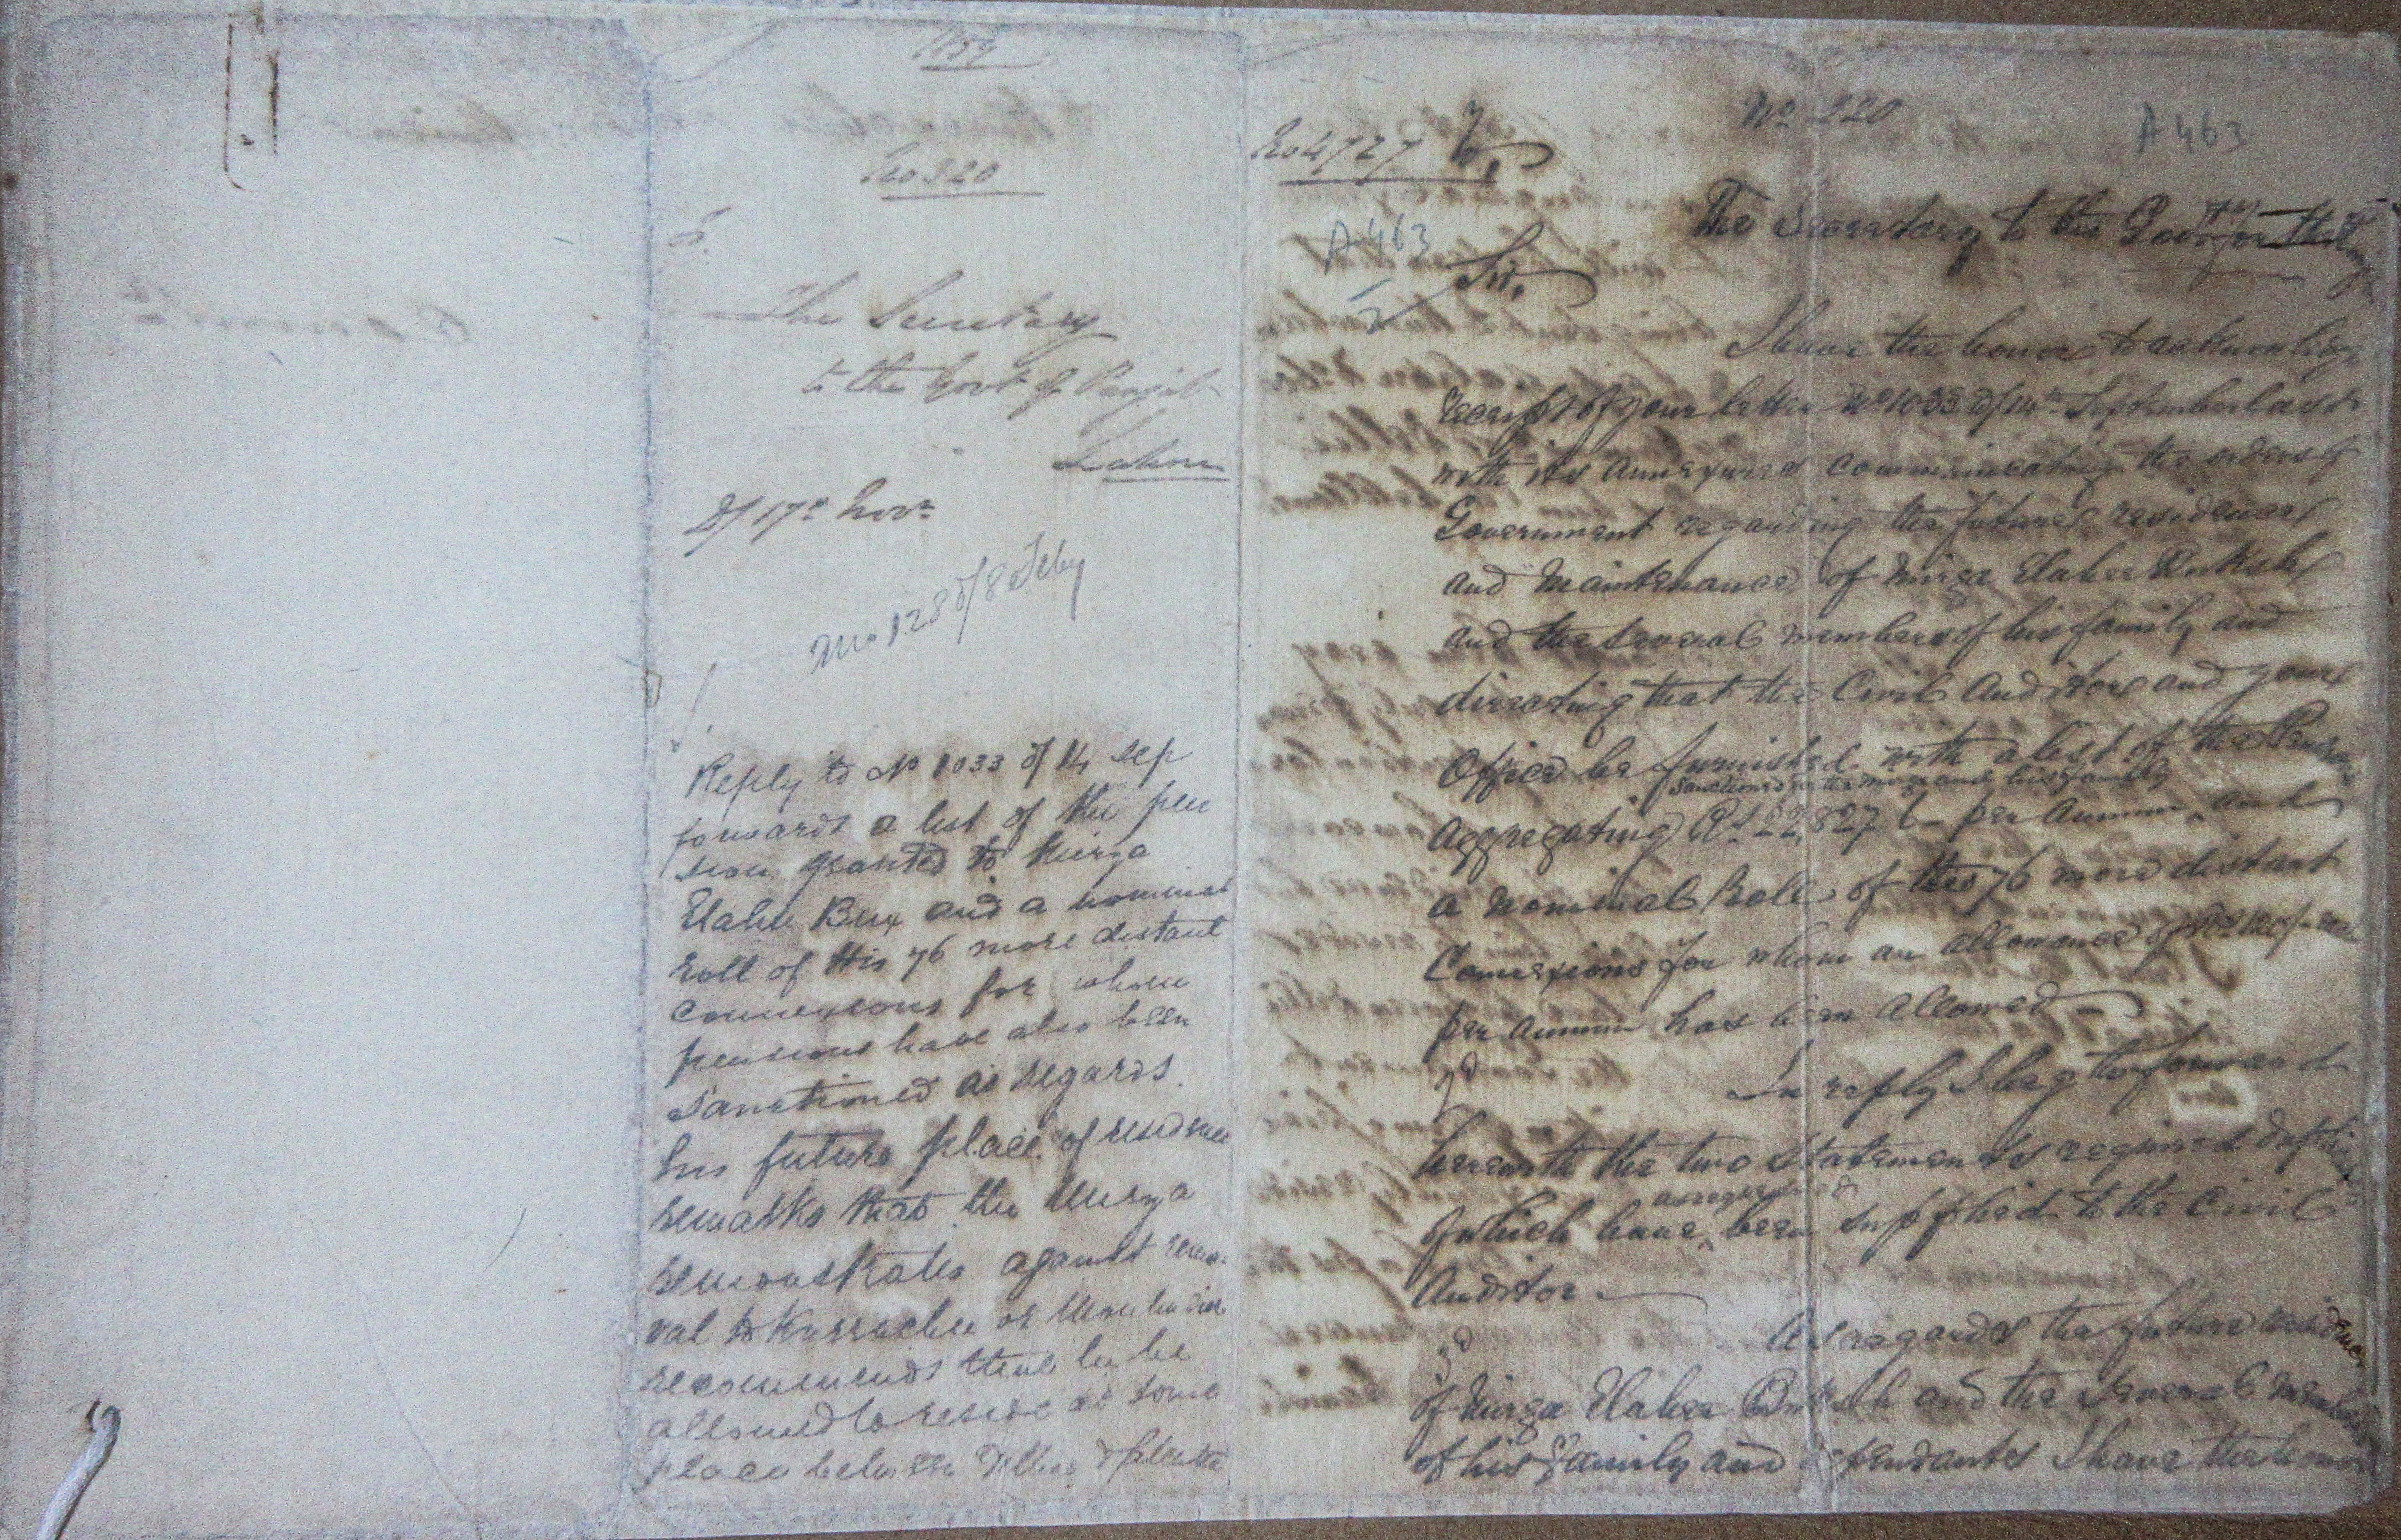 1859
No 320
To.
The Secretary
to the Govt of Punjab
Lahore
D/ 17th Novr
No 128 d/8 Feby
Reply to No 1033 of 14 Sep
forwards a list of the pen
sion granted to Mirza
Elahee Bux and a nominal
Roll of His 76 more distant
connexions for whom
pensions have also been
Sanctioned as regards.
his future place of residence
remarks that the Mirza
remonstrates against remo-
val to Kurrachee or
recommends that he be
allowed to reside at some
place between Delhi &
No 4727
No 320
A 463
To,
The Secretary to the
A 463
Sir,
I have the honor to acknowledge
receipt of your letter No 1033 d/14th September last
with its annexures communicating the orders of
Government regarding the future residence
and Maintenance of Mirza Elahee Buksh
and the several members of his family and
directing that the Civil Auditor and your
Office be furnished with a list of the Pensions
sanctioned to the mirza and his family
aggregating Rs 22,827 6 - per annum and
a nominal Roll of the 76 more distant
Connexions for whom an allowance of
per annum has been allowed
2d In reply I beg to forward
herewith the two Statements required
of which have been supplied to the Civil
Auditor.
3d As regards the future residence
of Mirza Elahee Buksh and the several members
of his family and dependants I have the honor